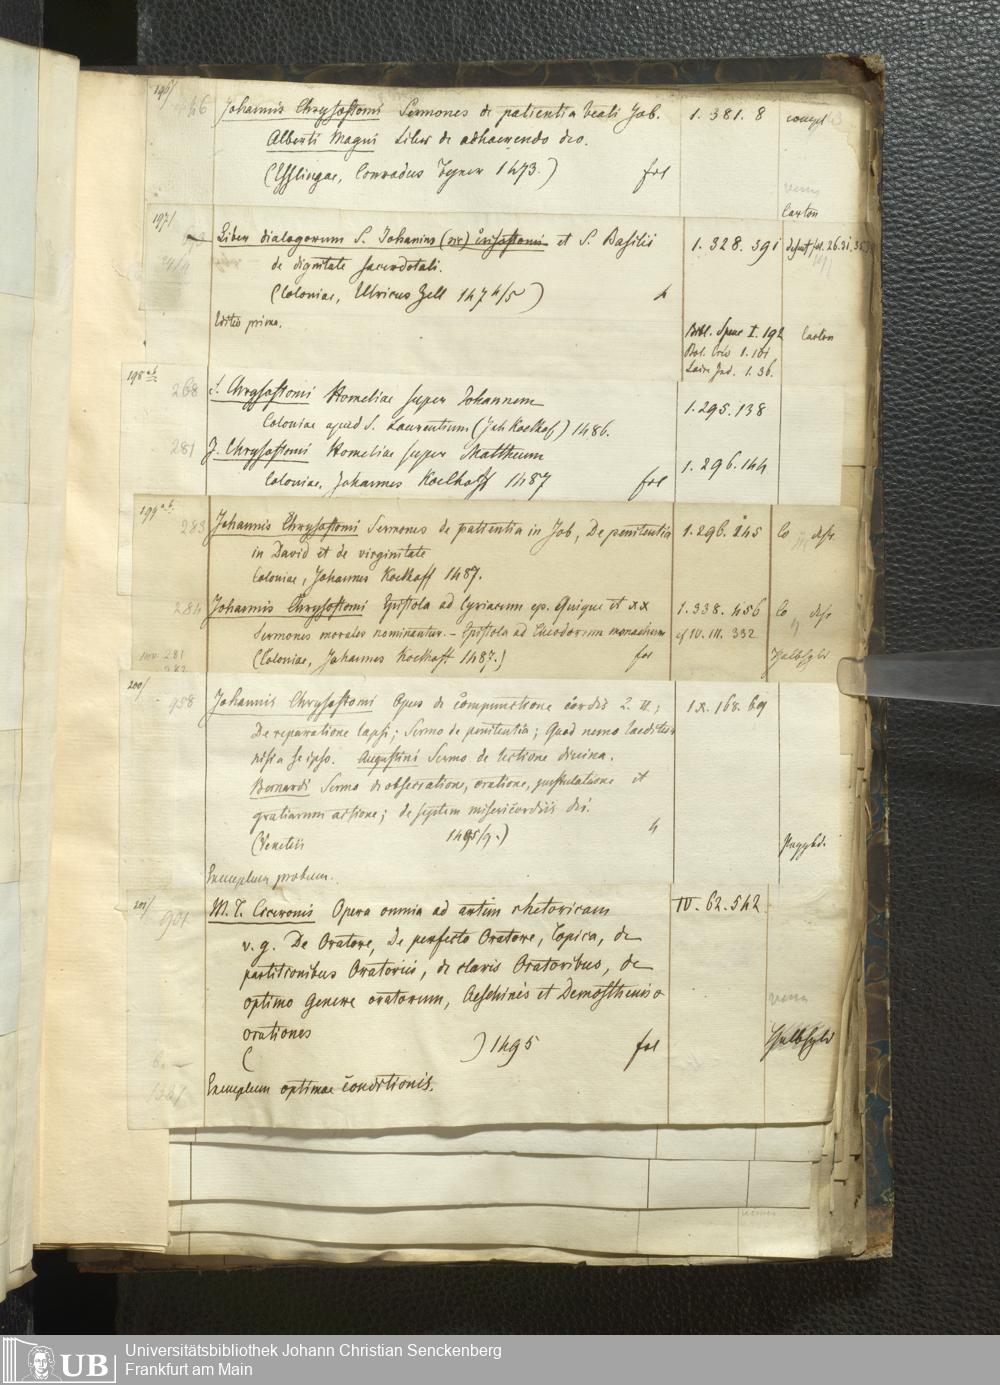 196/
46 Johannis Chrysostomi Sermones de patientia beati Job. 1. 381. 8 compl
Alberti Magni Liber de adhaerendo deo.
(Esslingae, Conradus Fyner 1473.) fol
Carton
197/
Liber dialogorum S. Johannis (sic) Crisostomi et S. Basilii 1. 328. 391 defect fol. 26. 31. 35
de dignitate sacerdotali.
(Coloniae, Ulricus Zell 1474/5) 4
Editio prima. Bibl. Spenc I. 192 Carton
1. 101
Laire Ind. 1. 36.
198 a.b
268 S. Chrysostomi Homeliae super Johannem 1. 295. 138
Coloniae apud S. Laurentium (Joh Koelhof) 1486.
281 J. Chrysostomi Homeliae super Mattheum 1. 296. 144
Coloniae, Johannes Koelhoff 1487 fol
199 a.b.
283 Johannis Chrysostomi Sermones de patientia in Job, De penitentia 1. 296. 145 Co
in David et de virginitate
Coloniae, Johannes Koelhoff 1487.
284 Johannis Chrysostomi Epistola ad Cyriacum ep. Quique et xx 1. 338. 456 Co
Sermones morales nominantur. - Epistola ad Theodorum monachum cf IV. III. 332
inv. 281 (Coloniae, Johannes Koelhoff 1487.) fol Halbfzbd
282
200/
958 Johannis Chrysostomi Opus de compunctione cordis 2 ll.; IX. 168. 69
De reparatione lapsi; Sermo de penitentia; Quod nemo laeditur
nisi a se ipso. Augustini Sermo de lectione divina.
Bernardi Sermo de obsecratione, oratione, postulatione et
gratiarum actione; de septem misericordiis dei.
(Venetiis 1495/9.) 4 Pappbd.
Exemplum probum.
201/
901 M. T. Ciceronis Opera omnia ad artem rhetoricam IV. 62. 542
v. g. De Oratore, de perfecto Oratore, Topica, de
partitionibus Oratoriis, de claris Oratoribus, de
optimo genere oratorum, Aeschinis et Demosthenis
orationes
( ) 1495 fol Halbfzbd
1387
Exemplum optimae conditionis.
UB Universitätsbibliothek Johann Christian Senckenberg
Frankfurt am Main